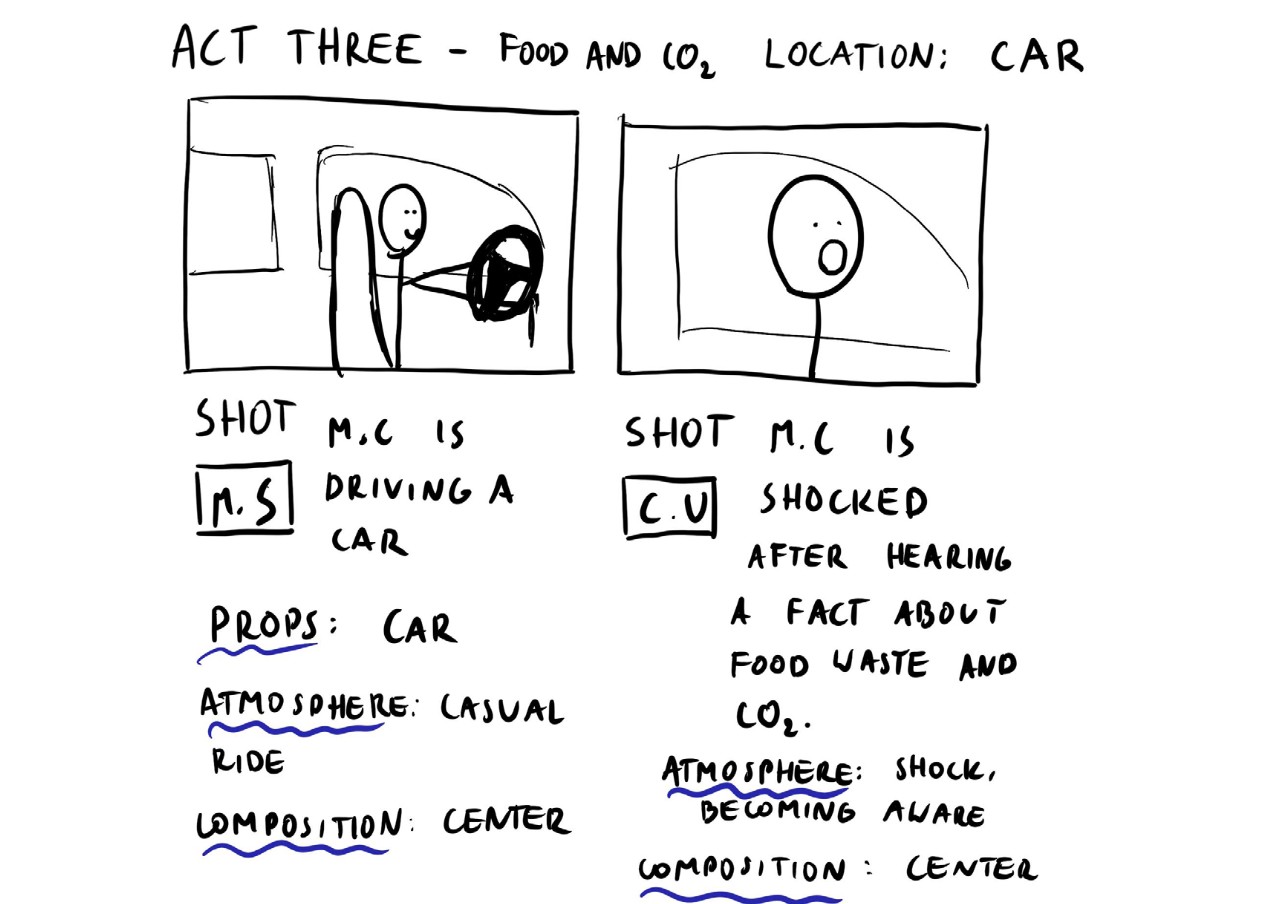 ACT THREE - FOOD AND CO₂ LOCATION: CAR
SHOT M.C IS
M.S DRIVING A
CAR
PROPS: CAR
ATMOSPHERE: CASUAL
RIDE
COMPOSITION: CENTER
SHOT M.C IS
C.U SHOCKED
AFTER HEARING
A FACT ABOUT
FOOD WASTE AND
CO₂.
ATMOSPHERE: SHOCK,
BECOMING AWARE
COMPOSITION: CENTER